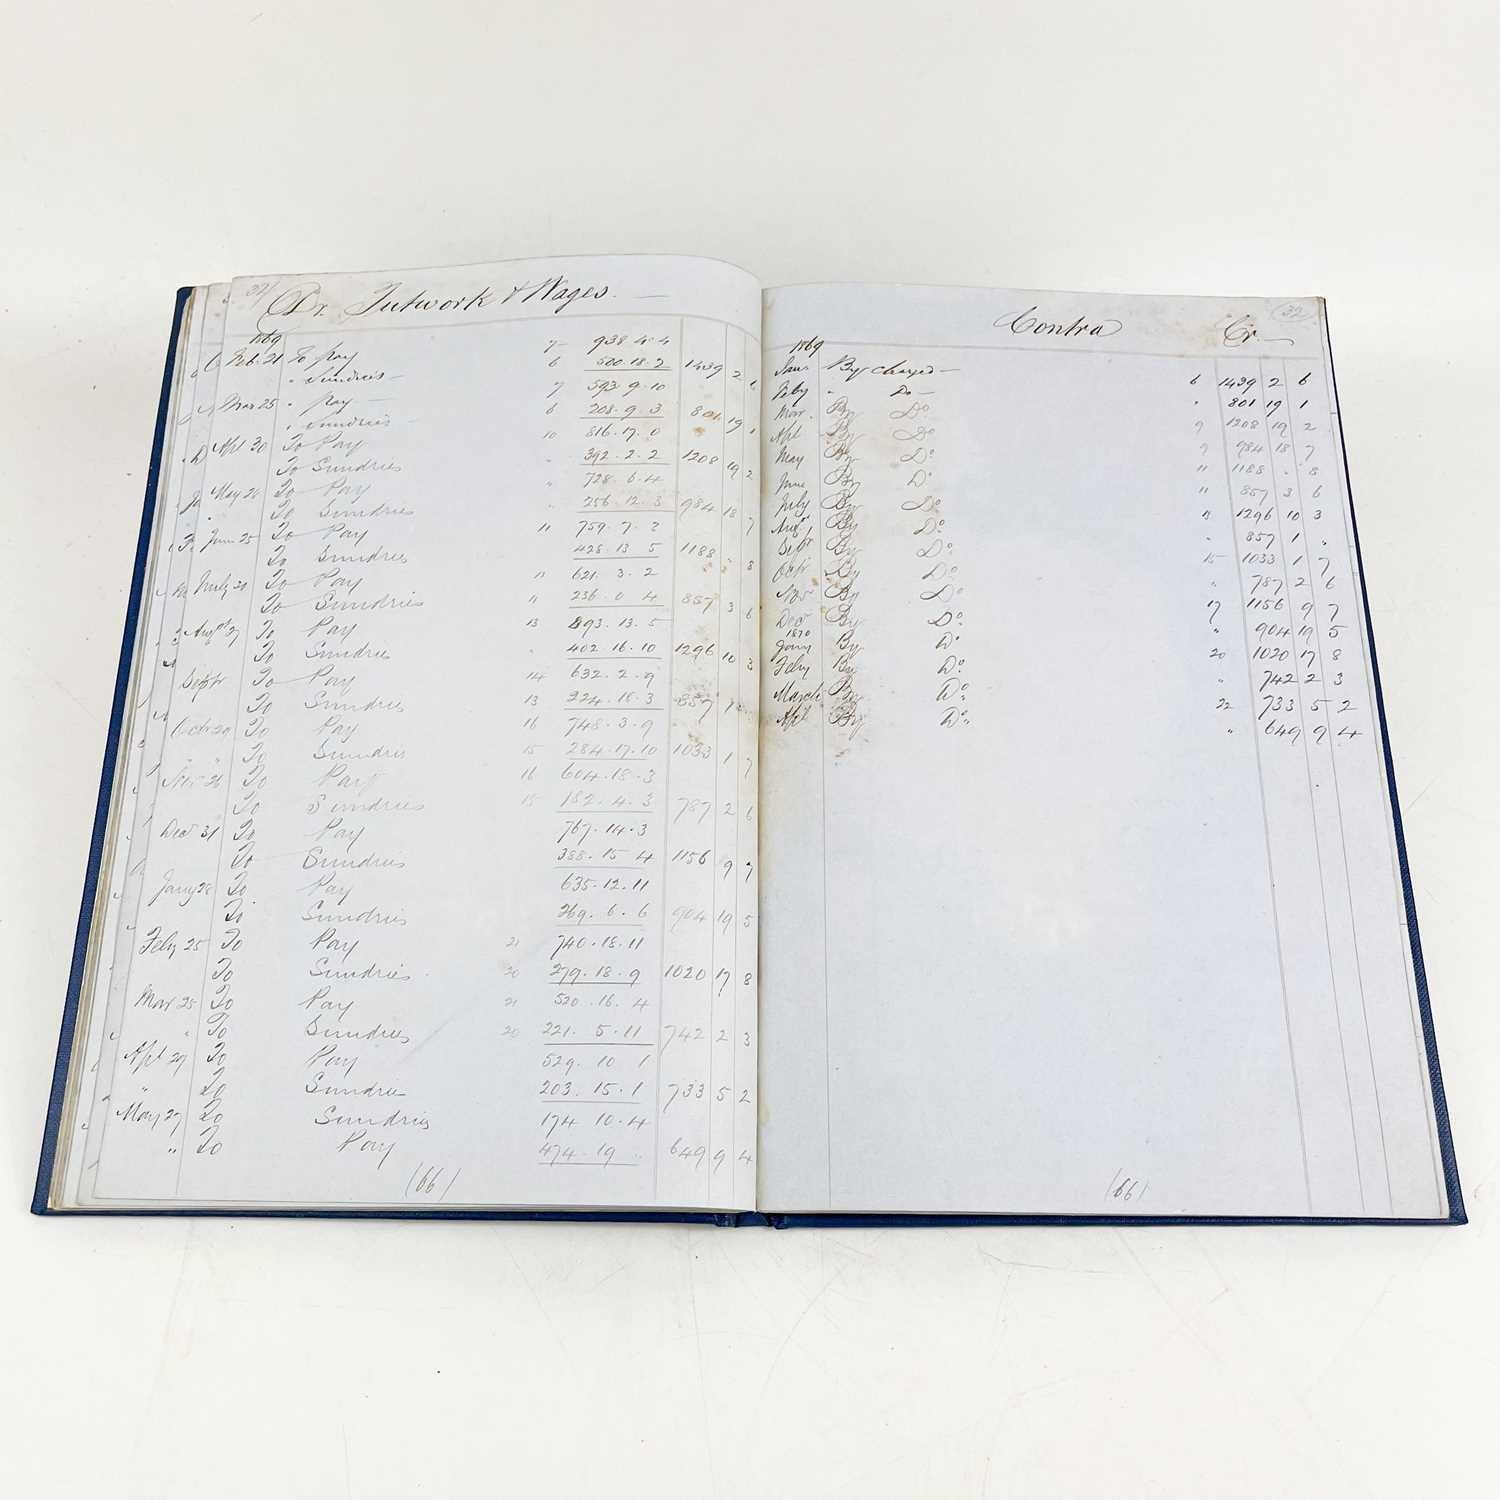 32
Dr. Tutwork & Wages.
1869
Feb. 21 To Pay 7 938. 4. 4
" Sundries 6 500. 18. 2 1439 2 6
Mar 25 " Pay 7 593 9. 10
" Sundries 6 208. 9. 3 801 19 1
Apl 30 To Pay 10 816. 17. 0
To Sundries " 392. 2. 2 1208 19 2
May 28 To Pay " 728. 6. 4
To Sundries " 256. 12. 3 984 18 7
June 25 To Pay 11 759. 7. 3
To Sundries 428. 13. 5 1188 " 8
July 20 To Pay 11 621. 3. 2
To Sundries 11 236. 0. 4 857 3 6
Augst 27 To Pay 13 893. 13. 5
To Sundries " 402. 16. 10 1296 10 3
Septr To Pay 14 632. 2. 9
To Sundries 13 224. 18. 3 857 1 "
Octr 29 To Pay 16 748. 3. 9
" " To Sundries 15 284. 17. 10 1033 1 7
Nov 26 To Pay 16 604. 18. 3
To Sundries 15 182. 4. 3 787 2 6
Decr 31 To Pay 767. 14. 3
To Sundries 388. 15 4 1156 9 7
Jany 28 To Pay 635. 12. 11
To Sundries 269. 6. 6 904 19 5
Feby 25 To Pay 21 740. 18. 11
To Sundries 20 279. 18. 9 1020 17 8
Mar 25 To Pay 21 520. 16. 4
" To Sundries 20 221. 5. 11 742 2 3
Apl 29 To Pay 529. 10 1
" To Sundries 203. 15. 1 733 5 2
May 27 To Sundries 174 10. 4
" To Pay 474. 19 .. 649 9 4
(66)
32
Contra Cr.
1869
Jany By charged 6 1439 2 6
Feby " Do " 801 19 1
Mar. By Do 9 1208 19 2
Apl By Do 9 984 18 7
May By Do 11 1188 " 8
June By Do 11 857 3 6
July By Do 13 1296 10 3
Augst By Do " 857 1 "
Septr By Do 15 1033 1 7
Octr By Do " 787 2 6
Novr By Do 17 1156 9 7
Decr By Do " 904 19 5
1870
Jany By Do 20 1020 17 8
Feby By Do " 742 2 3
March By Do 22 733 5 2
Apl By Do " 649 9 4
(66)